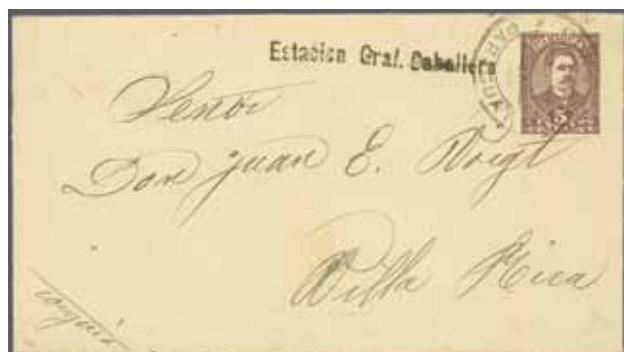 Estacion Gral. Caballero
PAR
5
Señor
Don Juan E. Voigt
Villa Rica